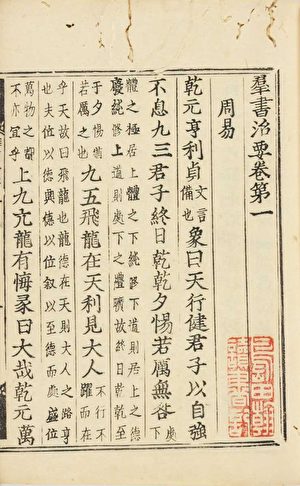 羣書治要卷第一
周易
乾元亨利貞文言備也象曰天行健君子以自強
不息九三君子終日乾乾夕惕若厲無咎處下
體之極居上體之下純脩下道則居上之德
廢純脩上道則處下之禮曠故終日乾乾至
于夕惕猶若厲之也九五飛龍在天利見大人不行不躍而在
乎天故曰飛龍也龍德在天則大人之路亨
也夫位以德興德以位叙以至德而處盛位
萬物之覩不亦宜乎上九亢龍有悔彖曰大哉乾元萬